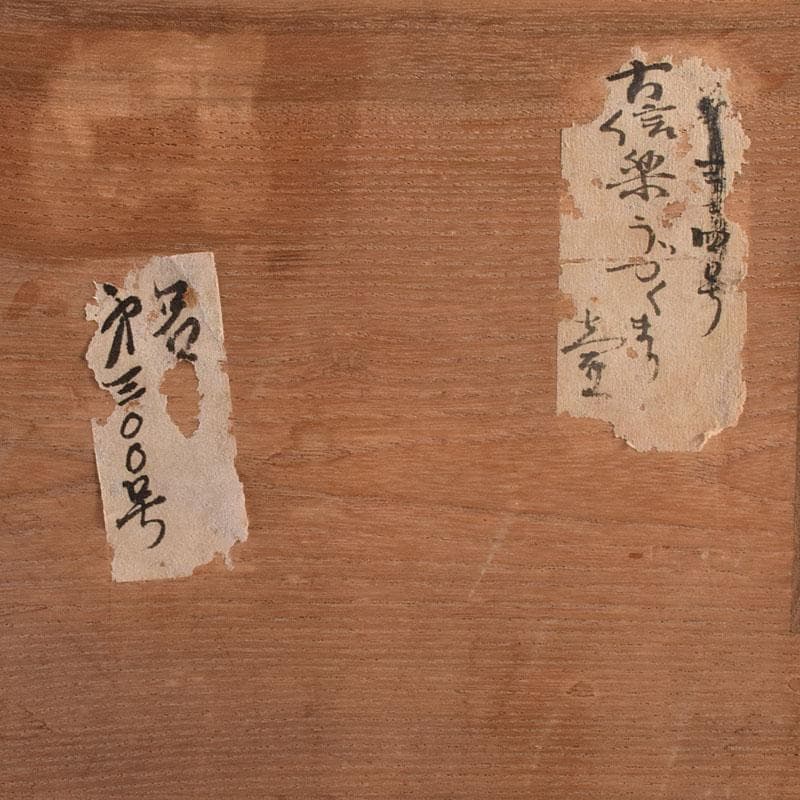 四号
古信楽うづくまり
壺
第三〇〇号